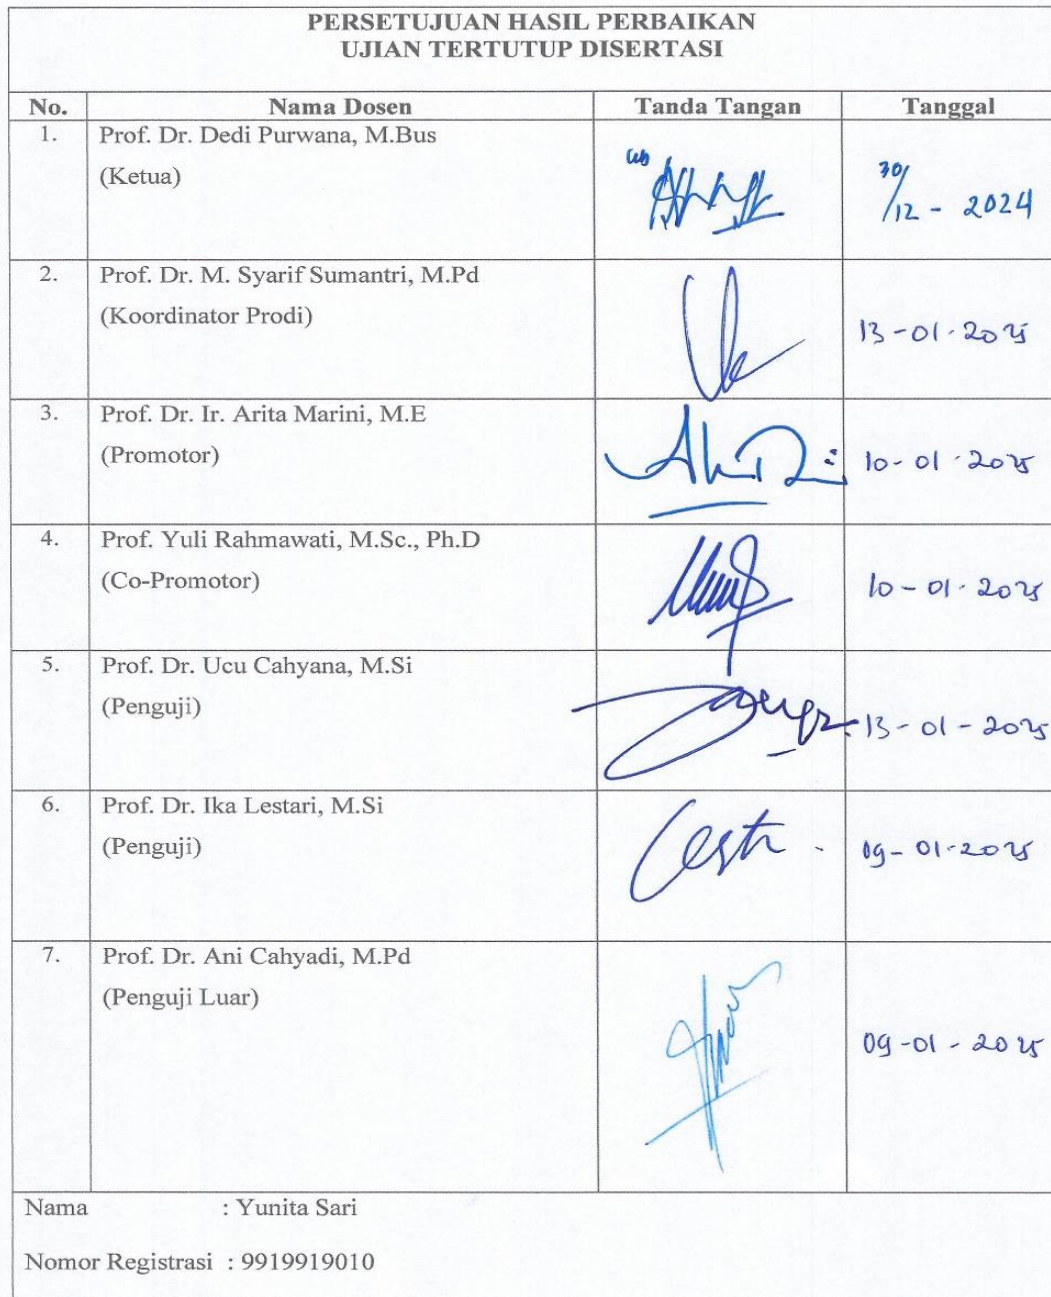 PERSETUJUAN HASIL PERBAIKAN
UJIAN TERTUTUP DISERTASI
No. Nama Dosen Tanda Tangan Tanggal
1. Prof. Dr. Dedi Purwana, M.Bus
(Ketua)
30/12 - 2024
2. Prof. Dr. M. Syarif Sumantri, M.Pd
(Koordinator Prodi)
13-01-2025
3. Prof. Dr. Ir. Arita Marini, M.E
(Promotor)
10-01-2025
4. Prof. Yuli Rahmawati, M.Sc., Ph.D
(Co-Promotor)
10-01-2025
5. Prof. Dr. Ucu Cahyana, M.Si
(Penguji)
13-01-2025
6. Prof. Dr. Ika Lestari, M.Si
(Penguji)
09-01-2025
7. Prof. Dr. Ani Cahyadi, M.Pd
(Penguji Luar)
09-01-2025
Nama : Yunita Sari
Nomor Registrasi : 9919919010